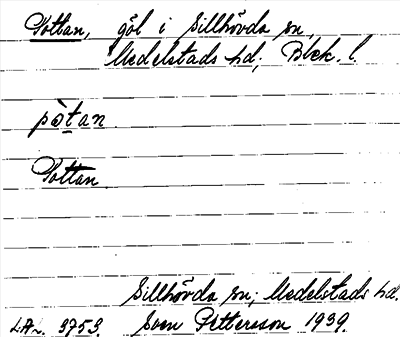 Pottan, göl i Sillhövda sn,
Medelstads hd, Blek. l.
pòtan
Pottan
Sillhövda sn, Medelstads hd.
LAL. 3753. Sven Pettersson 1939.